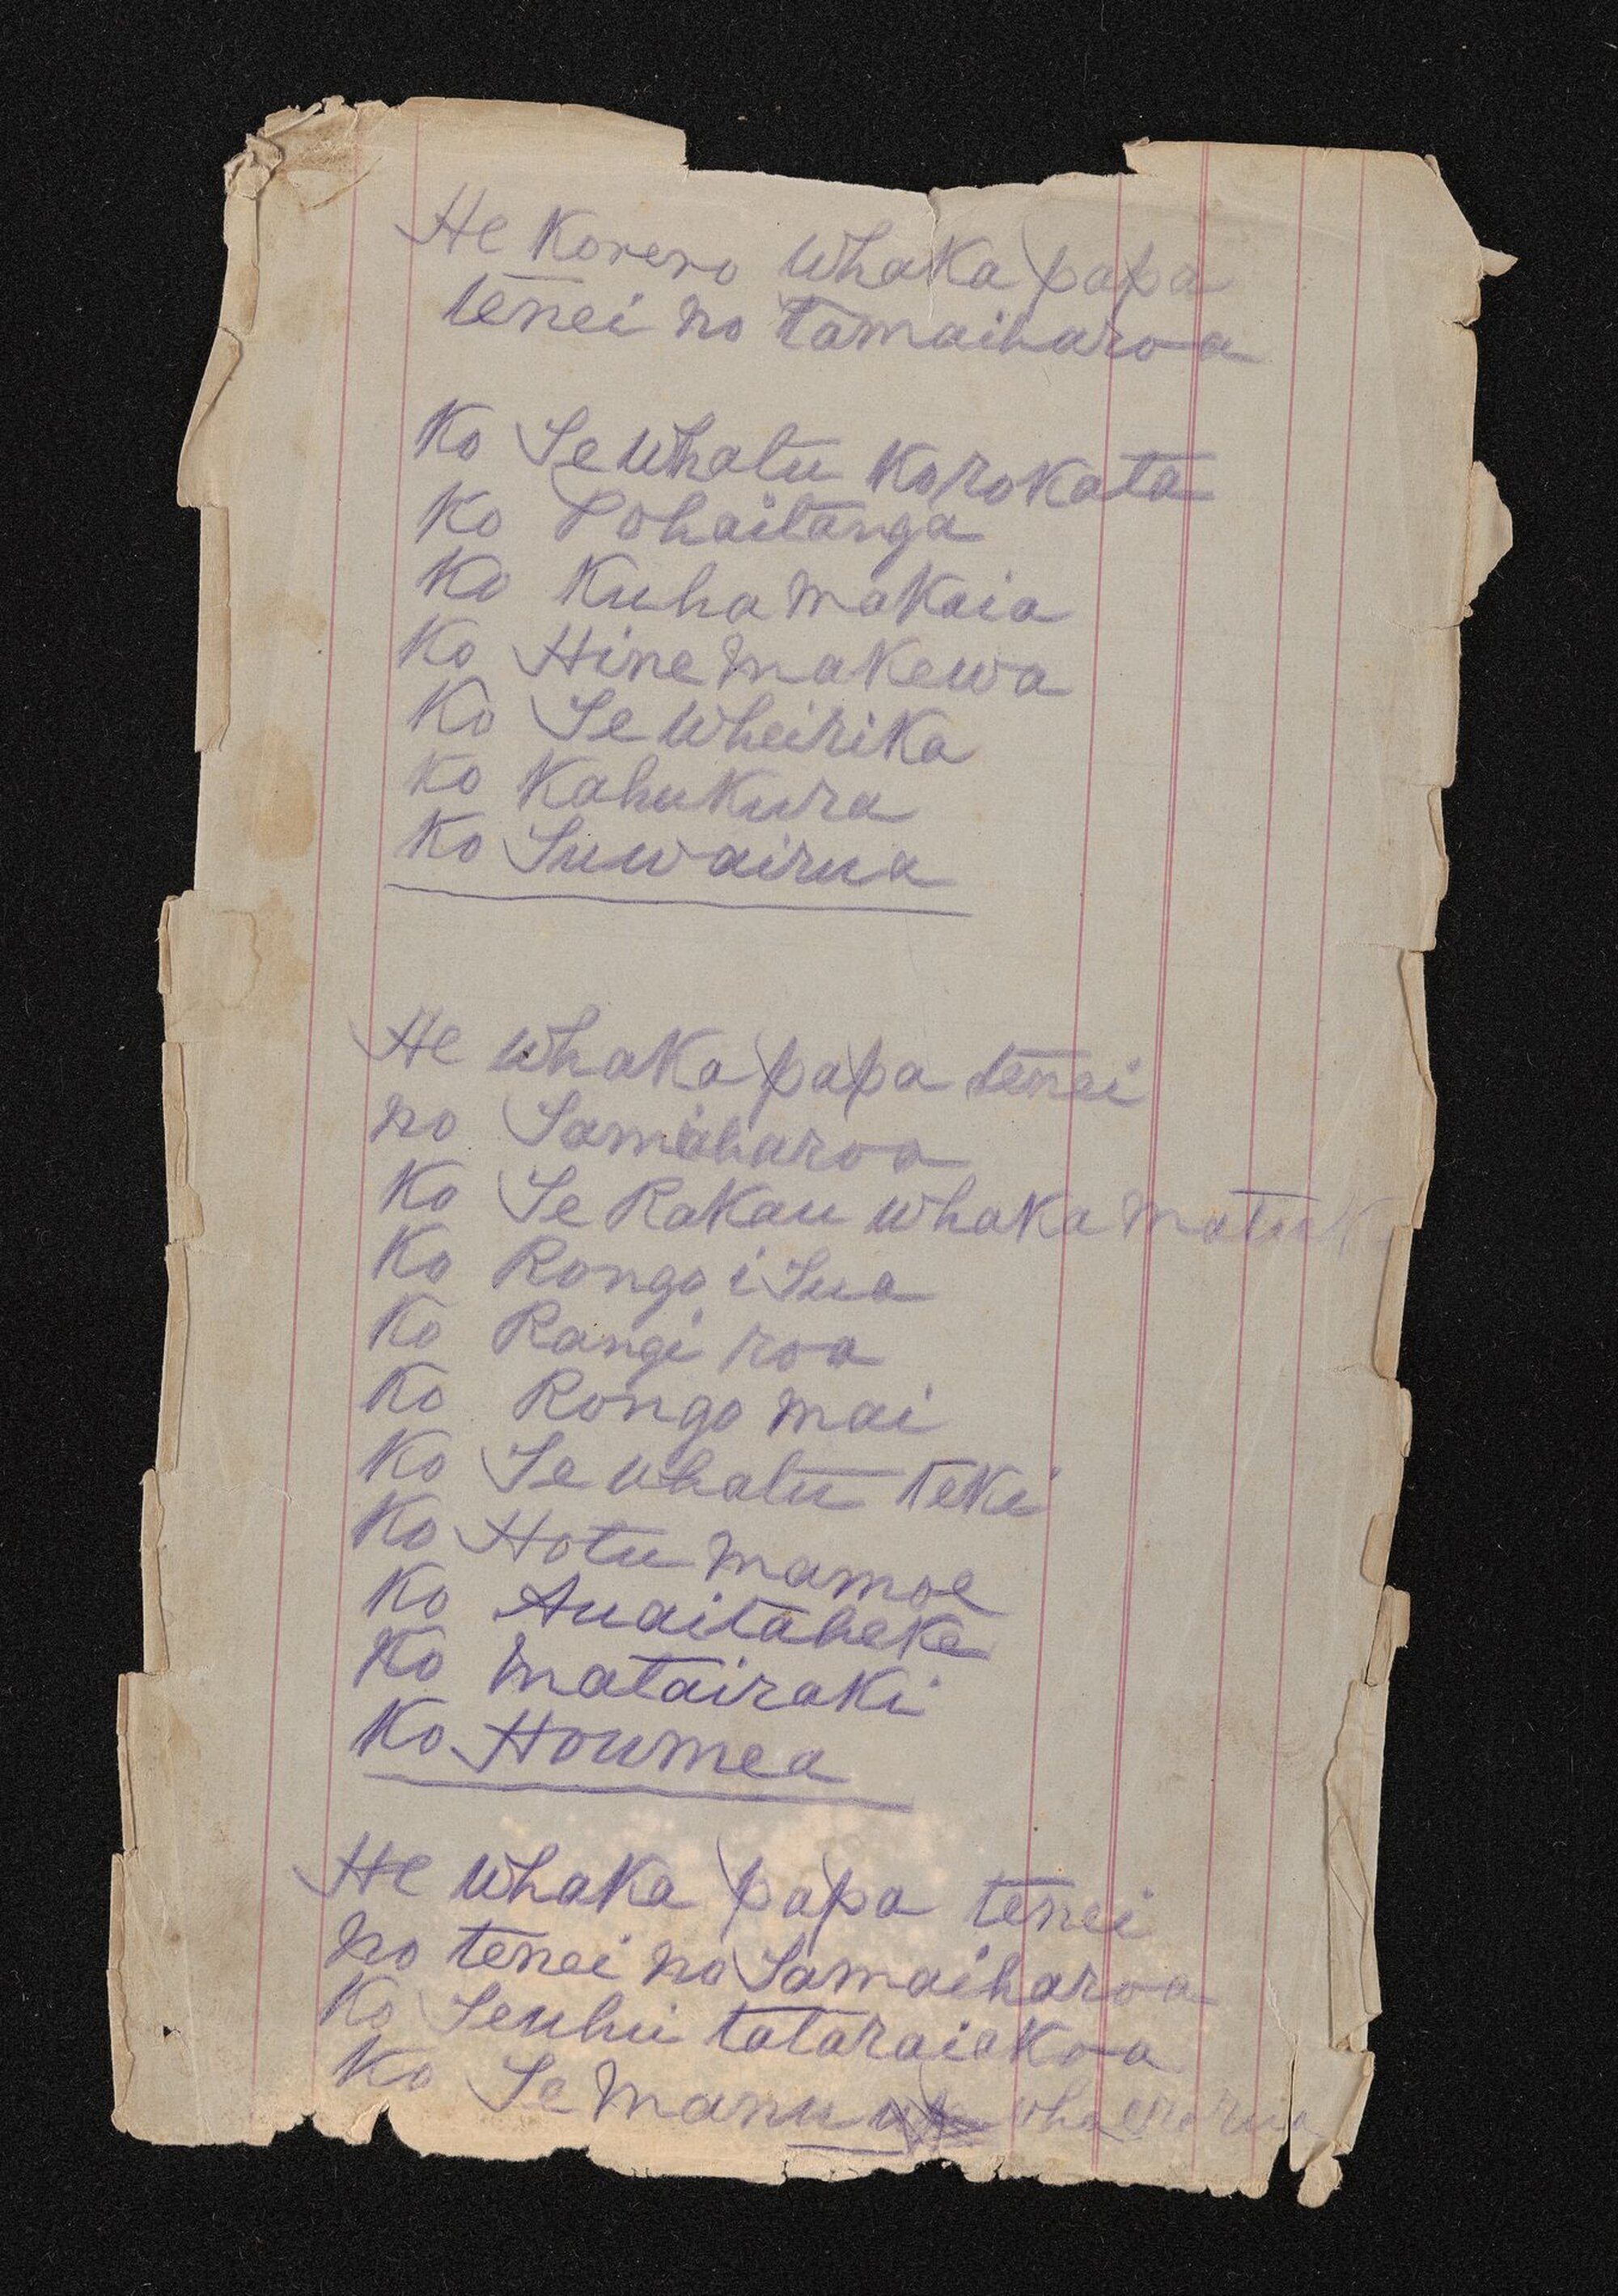 He Korero whaka papa
tenei no tamaiharoa
Ko Te whatu Korokata
Ko Pohaitanga
Ko Kuha makaia
Ko Hine makewa
Ko Te wheirika
Ko Kahukura
Ko Tuwairua
He whaka papa tenei
no Tamaiharoa
Ko Te Rakau whaka
Ko Rongo i Tua
Ko Rangi roa
Ko Rongo mai
Ko Te whatu teki
Ko Hotu mamoe
Ko Auaitaheke
Ko matairaki
Ko Houmea
He whaka papa tenei
no tenei no Tamaiharoa
Ko Teuhu tataraiakoa
Ko Te manu